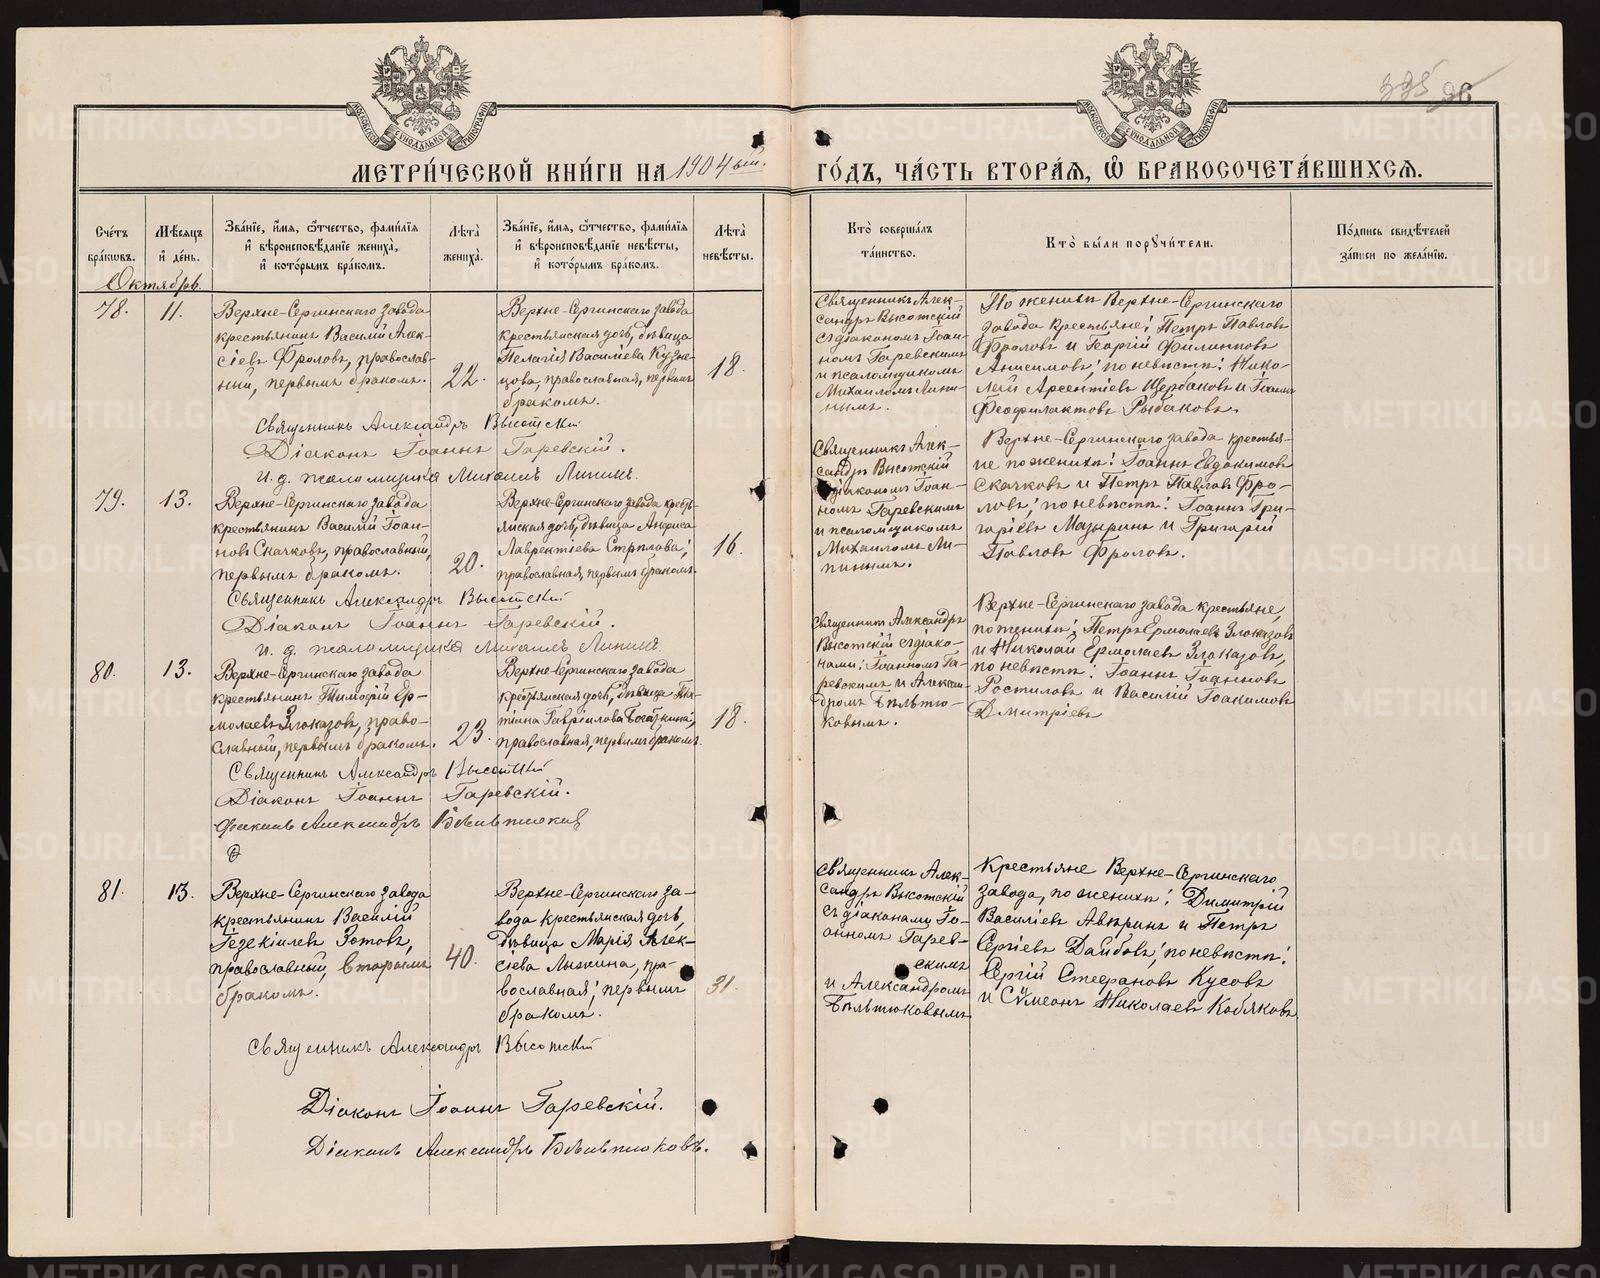 335 96
МОСКОВСКОЙ СѴНОДАЛЬНОЙ ТИПОГРАФІИ
МОСКОВСКОЙ СѴНОДАЛЬНОЙ ТИПОГРАФІИ
МЕТРИ́ЧЕСКОЙ КНИ́ГИ НА 1904 ый. ГО́ДЪ, ЧА́СТЬ ВТОРА́Ѧ, Ѽ БРАКОСОЧЕТА́ВШИХСѦ.
Сче́тъ бра́кѡвъ.
Мѣ́сѧцъ и҆ де́нь.
Зва́нїе, и҆́мѧ, ѻ҆́тчество, фами́лїѧ и҆ вѣроисповѣ́данїе жениха̀, и҆ кото́рымъ бра́комъ.
Лѣ́та жениха̀.
Зва́нїе, и҆́мѧ, ѻ҆́тчество, фами́лїѧ и҆ вѣроисповѣ́данїе невѣ́сты, и҆ кото́рымъ бра́комъ.
Лѣ́та невѣ́сты.
Кто̀ соверша́лъ та́инство.
Кто̀ бы́ли порꙋчи́тели.
По́дпись свидѣ́телей за́писи по жела́нїю.
Октябрь.
78. 11.
Верхне-Сергинскаго завода
крестьянинъ Василій Алек-
сіевъ Фроловъ, православ-
ный, первымъ бракомъ.
22.
Верхне-Сергинскаго завода
крестьянская дочь, дѣвица
Пелагія Василіева Кузне-
цова, православная, первымъ
бракомъ.
18.
Священникъ Алек-
сандръ Высотскій
съ діакономъ Іоан-
номъ Гаревскимъ
и псаломщикомъ
Михаиломъ Липи-
нымъ.
По женихѣ Верхне-Сергинскаго
завода крестьяне: Петръ Павловъ
Фроловъ и Георгій Филипповъ
Анисимовъ; по невѣстѣ: Нико-
лай Арсентіевъ Щербаковъ и Іоаннъ
Феофилактовъ Рыбаковъ.
Священникъ Александръ Высотскій
Діаконъ Іоаннъ Гаревскій.
И. д. псаломщика Михаилъ Липинъ.
79. 13.
Верхне-Сергинскаго завода
крестьянинъ Василій Іоан-
новъ Скачковъ, православный,
первымъ бракомъ.
20.
Верхне-Сергинскаго завода кресть-
янская дочь, дѣвица Анфиса
Лаврентіева Стрѣлова;
православная, первымъ бракомъ.
16.
Священникъ Алек-
сандръ Высотскій
съ діакономъ Іоан-
номъ Гаревскимъ
и псаломщикомъ
Михаиломъ Ли-
пинымъ.
Верхне-Сергинскаго завода крестья-
не по женихѣ: Іоаннъ Евдокимовъ
Скачковъ и Петръ Павловъ Фро-
ловъ; по невѣстѣ: Іоаннъ Гри-
горіевъ Мазыринъ и Григорій
Павловъ Фроловъ.
Священникъ Александръ Высотскій
Діаконъ Іоаннъ Гаревскій.
И. д. псаломщика Михаилъ Липинъ.
80. 13.
Верхне-Сергинскаго завода
крестьянинъ Тимофій Ер-
молаевъ Злоказовъ, право-
славный, первымъ бракомъ.
23.
Верхне-Сергинскаго завода
крестьянская дочь, дѣвица Та-
тіана Гавріилова
православная, первымъ бракомъ.
18.
Священникъ Александръ
Высотскій съ діако-
нами: Іоанномъ Га-
ревскимъ и Алексан-
дромъ Бѣльтю-
ковымъ.
Верхне-Сергинскаго завода крестьяне,
по женихѣ: Петръ Ермолаевъ Злоказовъ
и Николай Ермолаевъ Злоказовъ,
по невѣстѣ: Іоаннъ Іоанновъ
Ростиловъ и Василій Іоакимовъ
Дмитріевъ
Священникъ Александръ Высотскій
Діаконъ Іоаннъ Гаревскій.
Діаконъ Александръ Бѣльтюковъ
81. 13.
Верхне-Сергинскаго завода
крестьянинъ Василій
Іезекіилевъ Зотовъ,
православный, вторымъ
бракомъ.
40.
Верхне-Сергинскаго за-
вода крестьянская дочь,
дѣвица Марія Алек-
сіева Лыжина, пра-
вославная; первымъ
бракомъ.
31.
Священникъ Алек-
сандръ Высотскій
съ діаконами Іо-
анномъ Гарев-
скимъ
и Александромъ
Бѣльтюковымъ
Крестьяне Верхне-Сергинскаго
завода, по женихѣ: Димитрій
Василіевъ Аверинъ и Петръ
Сергіевъ Дайбовъ; по невѣстѣ:
Сергій Стефановъ Кусовъ
и Сѵмеонъ Николаевъ Кобяковъ.
Священникъ Александръ Высотскій
Діаконъ Іоаннъ Гаревскій.
Діаконъ Александръ Бѣльтюковъ.